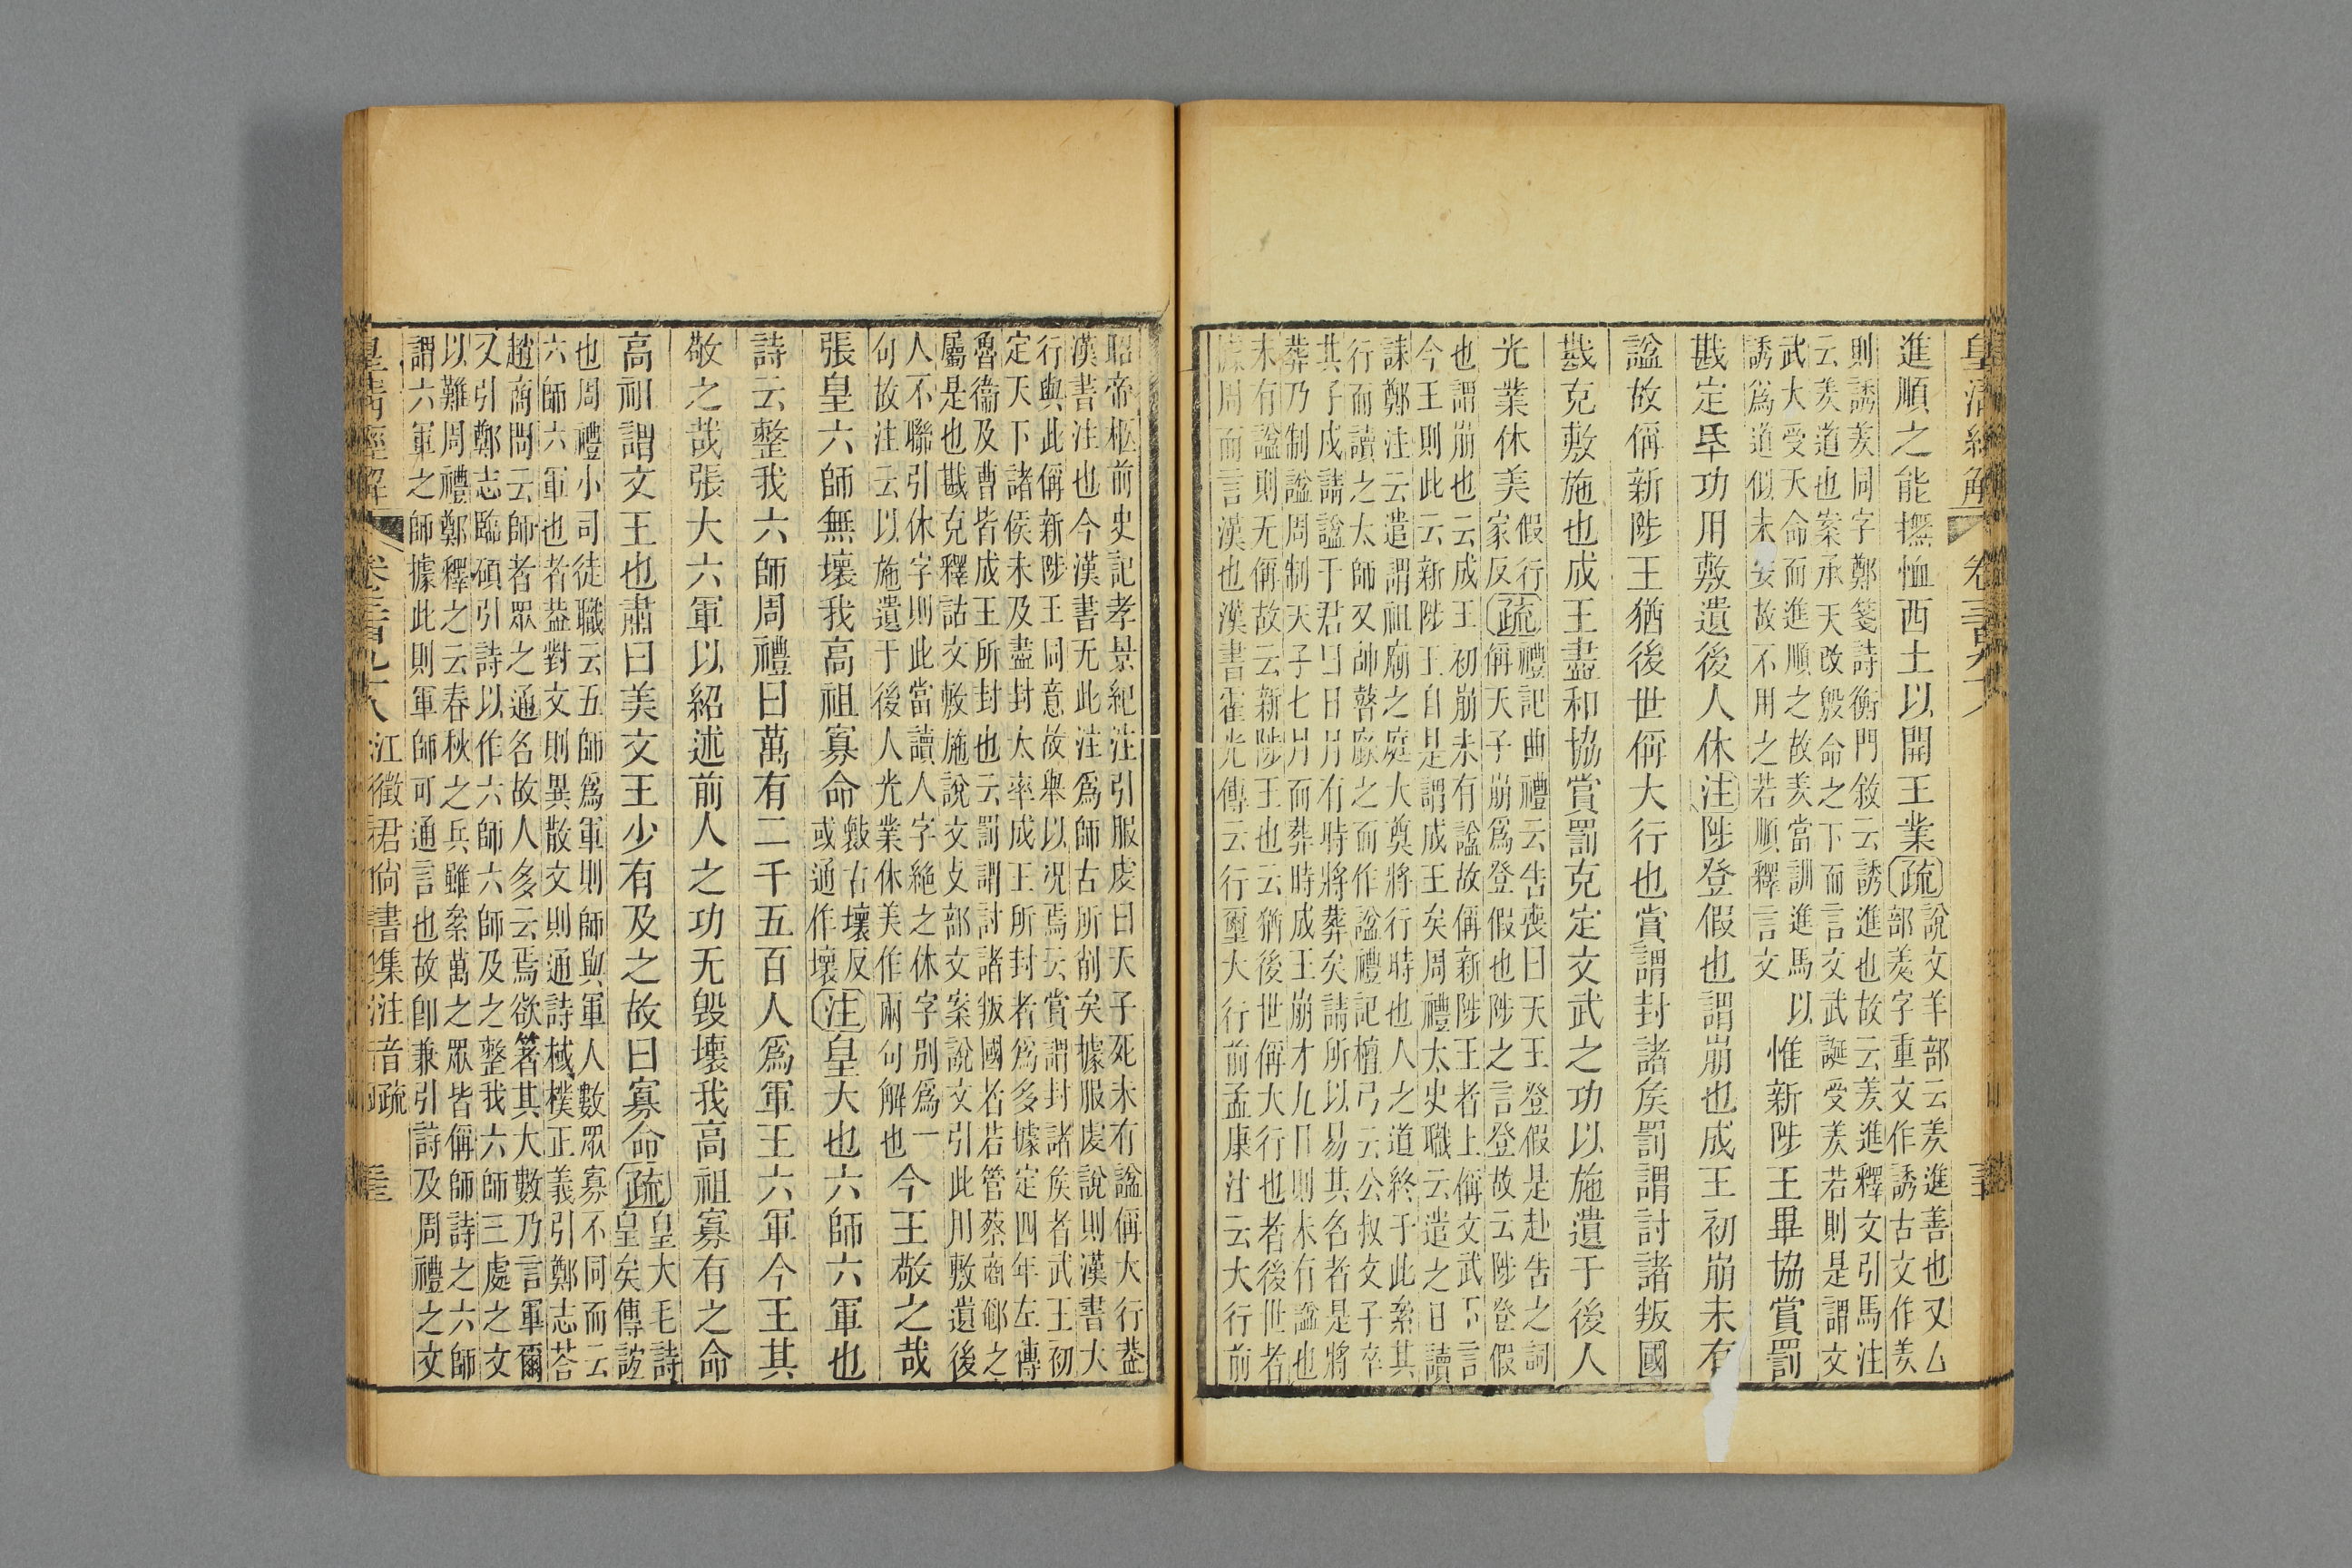 進順之能撫恤西土以開王業疏說文羊部云羑進善也又厶
部羑字重文作誘古文作羑
則誘羑同字鄭箋詩衡門敘云誘進也故云羑進釋文引馬注
云羑道也案承天改殷命之下而言文武誕受羑若則是謂文
武大受天命而進順之故羑當訓進馬
誘爲道似未安故不用之若順釋言文
以惟新陟王畢協賞罰
戡定厥功用敷遺後人休注陟登假也謂崩也成王初崩未有
諡故偁新陟王猶後世偁大行也賞謂封諸矦罰謂討諸叛國
戡克敷施也成王盡和協賞罰克定文武之功以施遺于後人
光業休美假行
家反疏禮記曲禮云告喪曰天王登假是赴告之詞
偁天子崩爲登假也陟之言登故云陟登假
也謂崩也云成王初崩未有諡故偁新陟王者上偁文武下言
今王則此云新陟王自是謂成王矣周禮太史職云遣之日讀
誄鄭注云遣謂祖廟之庭大奠將行時也人之道終于此絫其
行而讀之太師又帥瞽廞之而作諡禮記檀弓云公叔文子卒
其子戍請諡于君曰日月有時將葬矣請所以易其名者是將
葬乃制諡周制天子七月而葬時成王崩才九日則未有諡也
未有諡則无偁故云新陟王也云猶後世偁大行也者後世者
據周而言漢也漢書霍光傳云行璽大行前孟康注云大行前
昭帝柩前史記孝景紀注引服虔曰天子死未有諡偁大行葢
漢書注也今漢書无此注爲師古所削矣據服虔說則漢書大
行與此偁新陟王同意故舉以況焉云賞謂封諸矦者武王初
定天下諸侯未及盡封太率成王所封者爲多據定四年左傳
魯衞及曹皆成王所封也云罰謂討諸叛國者若管蔡商郾之
屬是也戡克釋詁文敷施說文攴部文案說文引此用敷遺後
人不聯引休字則此當讀人字絶之休字別爲一
句故注云以施遺于後人光業休美作兩句解也
今王敬之哉
張皇六師無壞我高祖寡命斁古壞反
或通作壞注皇大也六師六軍也
詩云整我六師周禮曰萬有二千五百人爲軍王六軍今王其
敬之哉張大六軍以紹述前人之功无毀壞我高祖寡有之命
高祖謂文王也肅曰美文王少有及之故曰寡命疏皇大毛詩
皇矣傳誼
也周禮小司徒職云五師爲軍則師與軍人數眾寡不同而云
六師六軍也者葢對文則異散文則通詩棫樸正義引鄭志荅
趙商問云師者眾之通名故人多云焉欲箸其大數乃言軍爾
又引鄭志臨碩引詩以作六師六師及之整我六師三處之文
以難周禮鄭釋之云春秋之兵雖絫萬之眾皆偁師詩之六師
謂六軍之師據此則軍師可通言也故卽兼引詩及周禮之文
皇清經解 卷三百九十八 江徵君尙書集注音疏